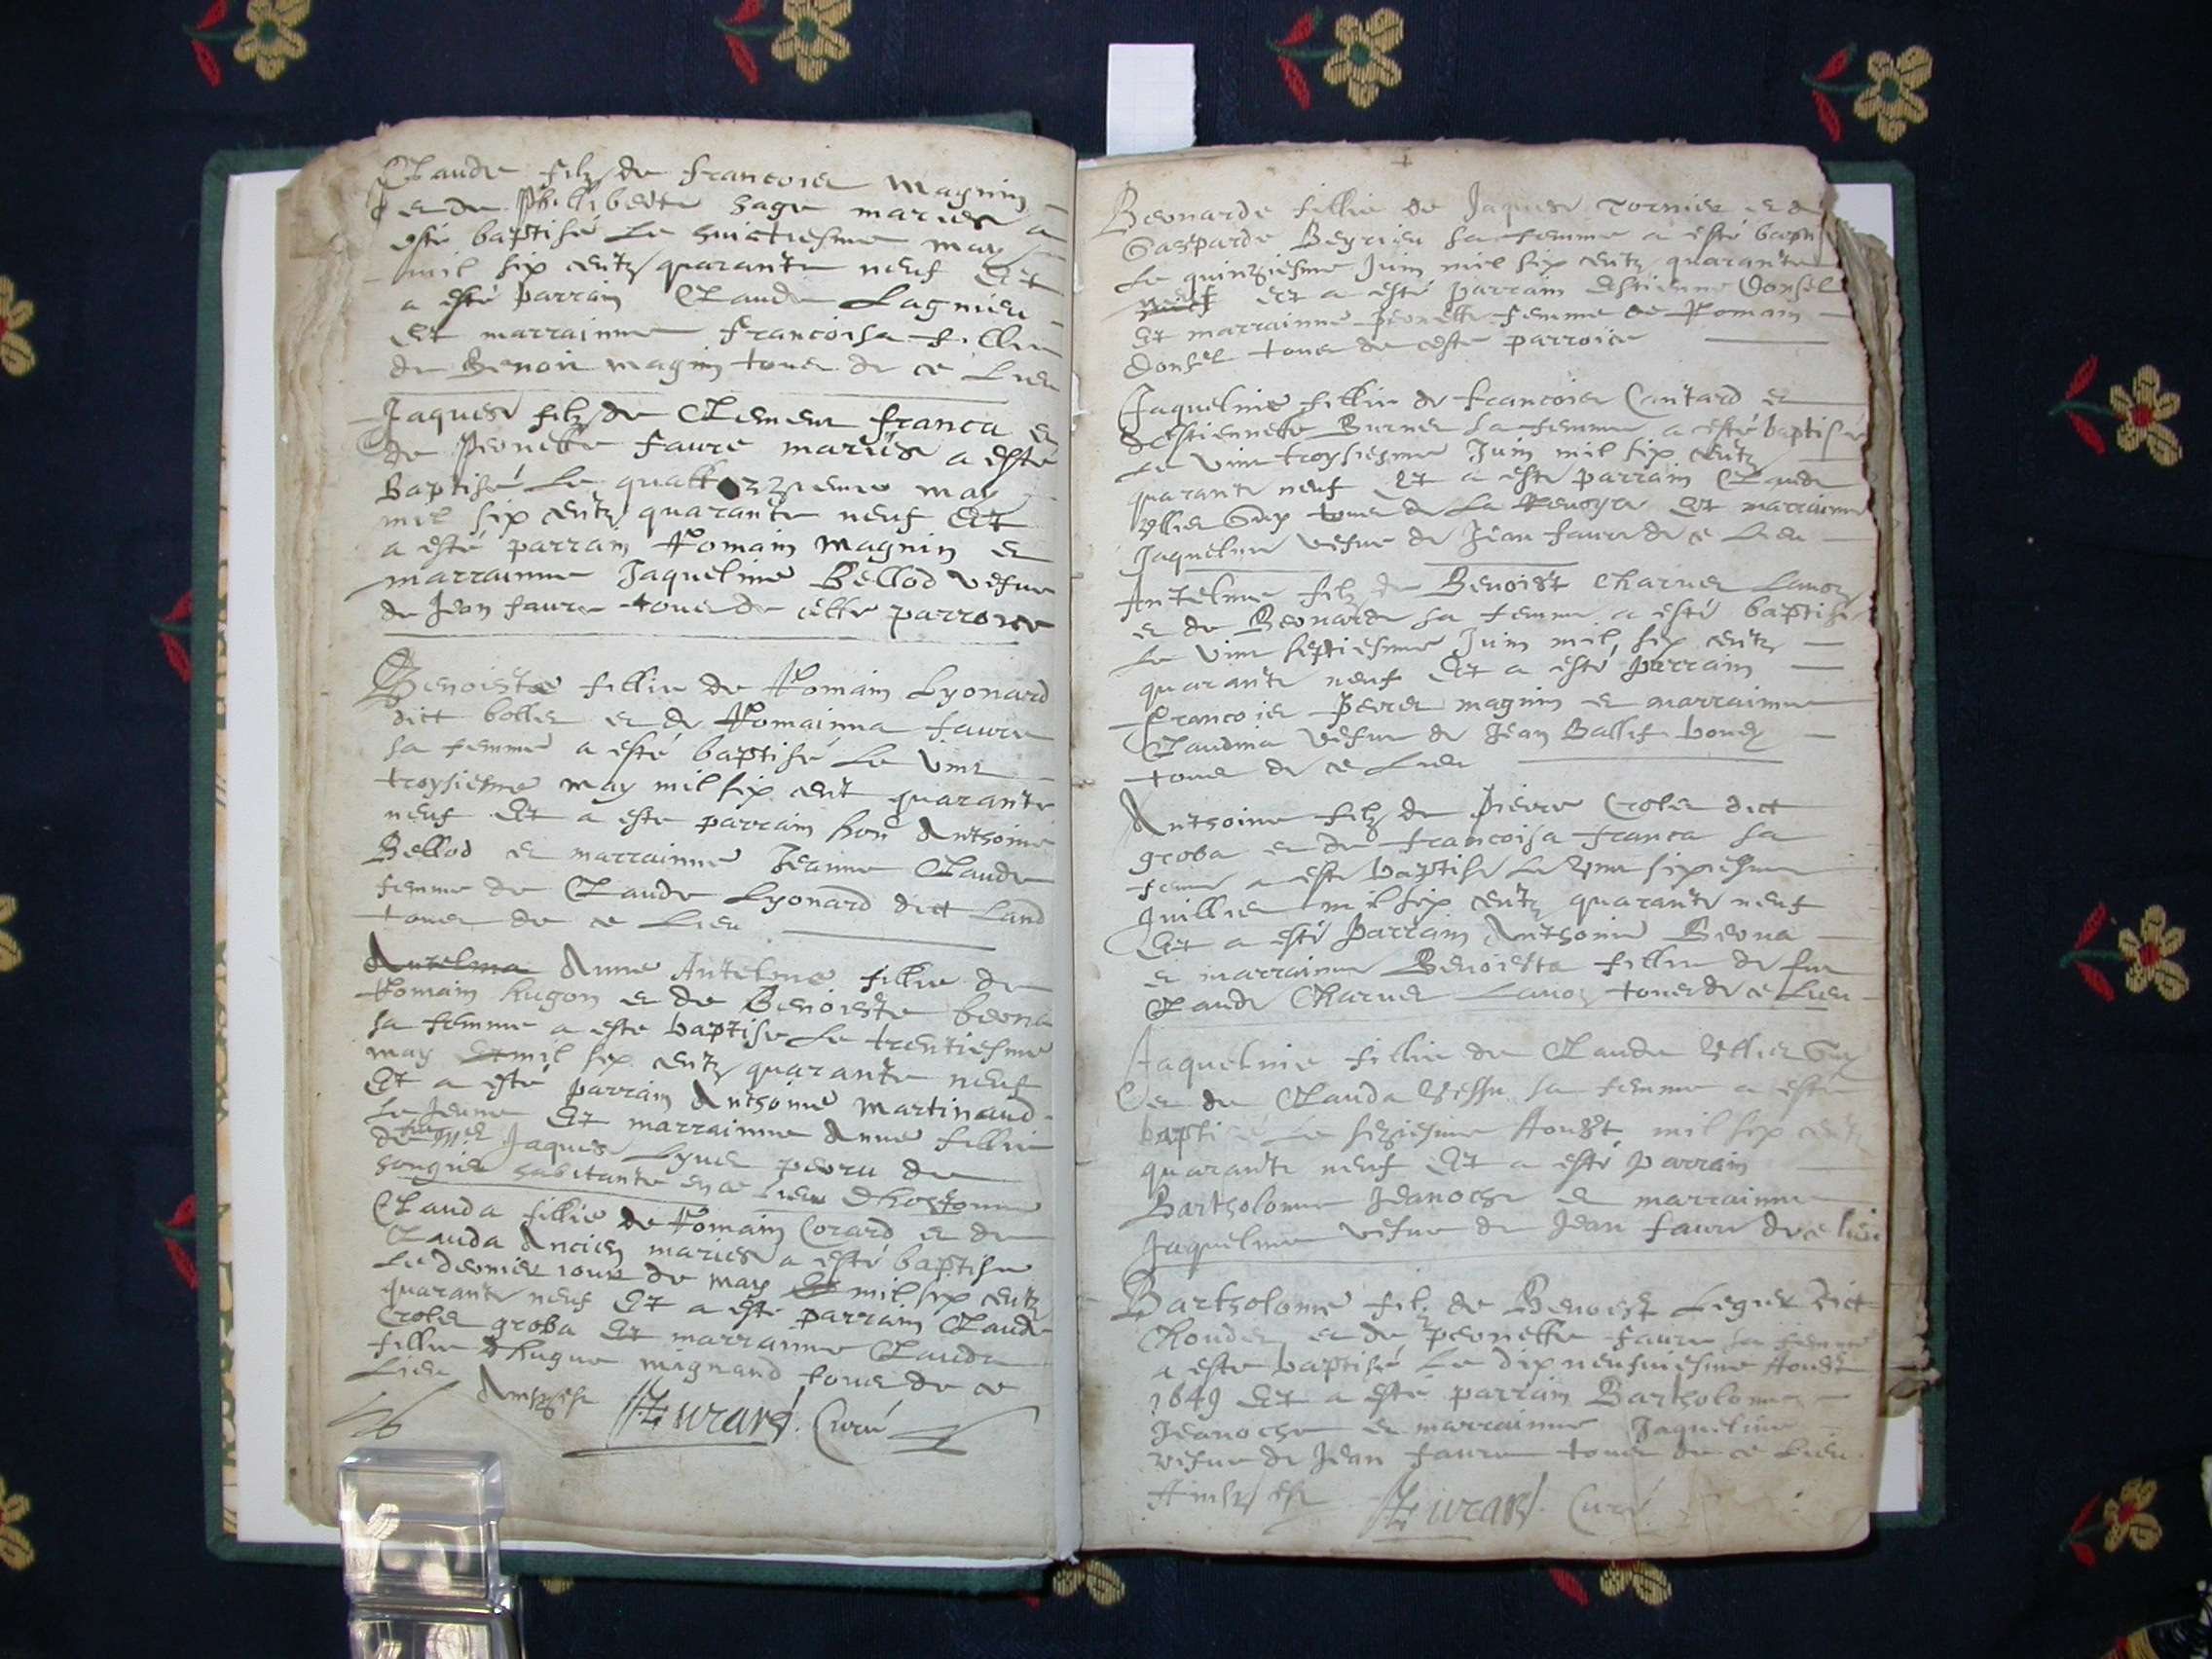 Claude filz de francois magnin
et de Philliberte sage maries a
esté baptisé Le huictiesme may
mil six centz quarante neuf Et
a esté parrain Claude Lagnieu
Et marrainne francoisa fillie
de Benoit magnin tous de ce Lieu
Jaques filz de Clement franca et
de peonette faure mariés a esté
Baptisé Le quattorzziemme may
mil six centz quarante neuf Et
a esté parrain Romain magnin et
marrainne Jaqueline Bellod vefve
de Jean faure tous de cette parroice
Benoiste fillie de Romain Lyonard
dict bollie et de Romainna faure
sa femme a esté baptisé Le vint
troysiesme may mil six cent quarante
neuf Et a este parrain hon Anthoine
Bellod et marrainne Jeanne Claude
femme de Claude Lyonard dict Land
tous de ce Lieu
Antelma Anne Antelme fillie de
Romain hugon et de Benoiste beona
sa femme a este baptise Le trentiesme
may Et mil six centz quarante neuf
Et a esté parrain Anthoine Martinand
Le Jeune Et marrainne Anne fillie
de Jaques Lyner peoru de
songieu habitante en ce Lieu Dhostonne
Clauda fillie de Romain Corard et de
Clauda Ancien maries a esté baptisee
Le dernier iour de may Et mil six centz
quarante neuf Et a esté parrain Claude
Crolet groba Et marrainne Clauda
fillie d hugue mignand tous de ce
Lieu
Ainsy est Heurard Curé
Beonarde fillie de Jaques Tornier et de
Gasparde Beyrieu sa femme a esté bapti
Le quinziesme Juin mil six centz quarante
neuf Et a esté parrain Estienne Donsel
Et marrainne peonette femme de Romain
Donsel tous de ceste parroice
Jaqueline fillie de francois Cantard et
de Estiennette Burnet sa femme a esté baptisé
Le vint troysiesme Juin mil six centz
quarante neuf Et a esté parrain Claude
ollier Guy tous de La Et marrainne
Jaqueline vefve de Jean faure de ce Lieu
Antelme filz de Benoist Charvet Lanoz
et de Beonarde sa femme a esté baptisé
Le vint septiesme Juin mil six centz
quarante neuf Et a esté parrain
francois Perret magnin et marrainne
Claudina vefve de Jean Ballif bouez
tous de ce Lieu
Anthoine filz de Pierre Crolet dict
groba et de francoisa franca sa
femme a esté baptisé Le vint sixiesme
Juillet mil six centz quarante neuf
Et a esté Parrain Anthoine Beona
et marrainne Benoista fillie de feu
Claude Charvet Lanoz tous de ce Lieu
Jaqueline fillie de Claude ollier Guy
et de Clauda sa femme a esté
baptise Le seziesme Aoust mil six centz
quarante neuf Et a esté parrain
Bartholome Jeanoche et marrainne
Jaqueline vefve de Jean faure de ce lieu
Bartholome filz de Benoist Legier dict
Chouder et de peonette faure sa femme
a este baptisé Le dix neufviesme Aoust
1649 Et a esté parrain Bartholome
Jeanoche et marrainne Jaqueline
vefve de Jean faure tous de ce Lieu
Ainsy est Heurard Curé